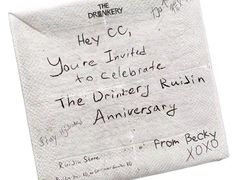 THE
DRINKERY
Hey CC,
You're Invited
to Celebrate
The Drinkery Ruisin
Anniversary
From Becky
XOXO
Ruisin Store